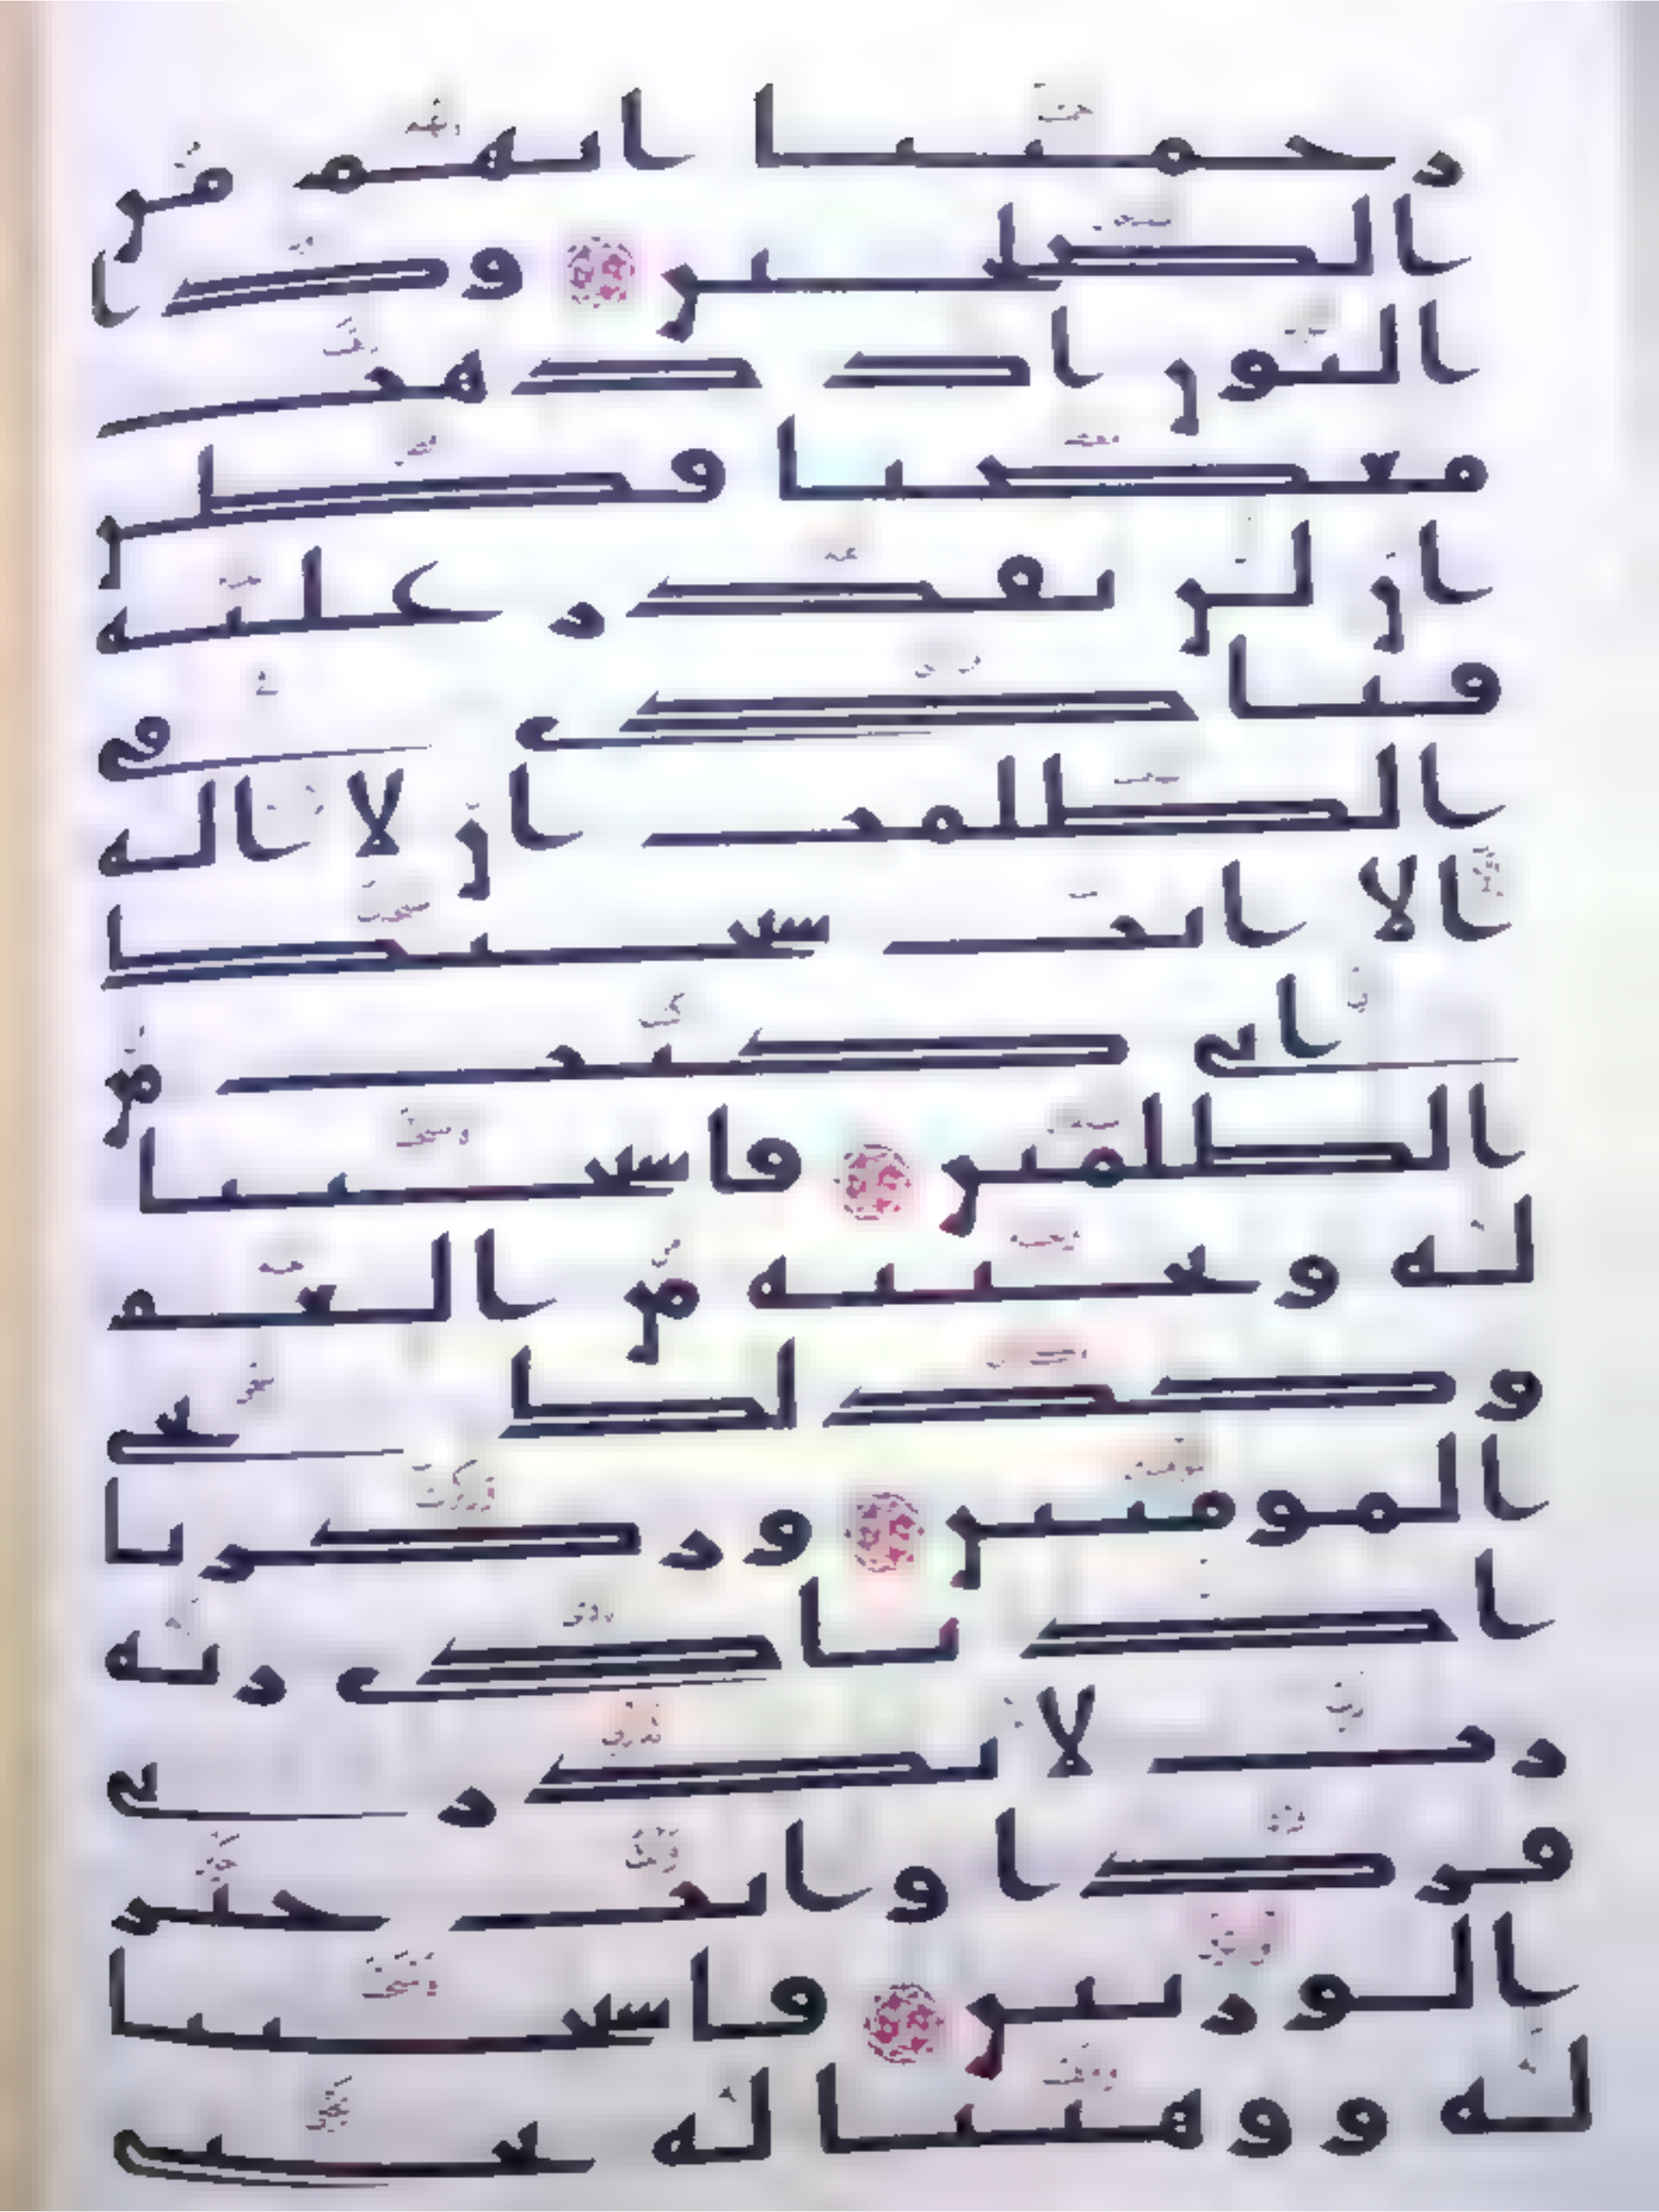 رحمتنا انهم من
الصلحين وذا
النون اذ ذهب
مغضبا فظن
ان لن نقدر عليه
فنادى في
الظلمت ان لا اله
الا انت سبحنك
اني كنت من
الظلمين فاستجبنا
له ونجينه من الغم
وكذلك نجي
المومنين وزكريا
اذ نادى ربه
رب لا تذرني
فردا وانت خير
الورثين فاستجبنا
له ووهبنا له يحيى